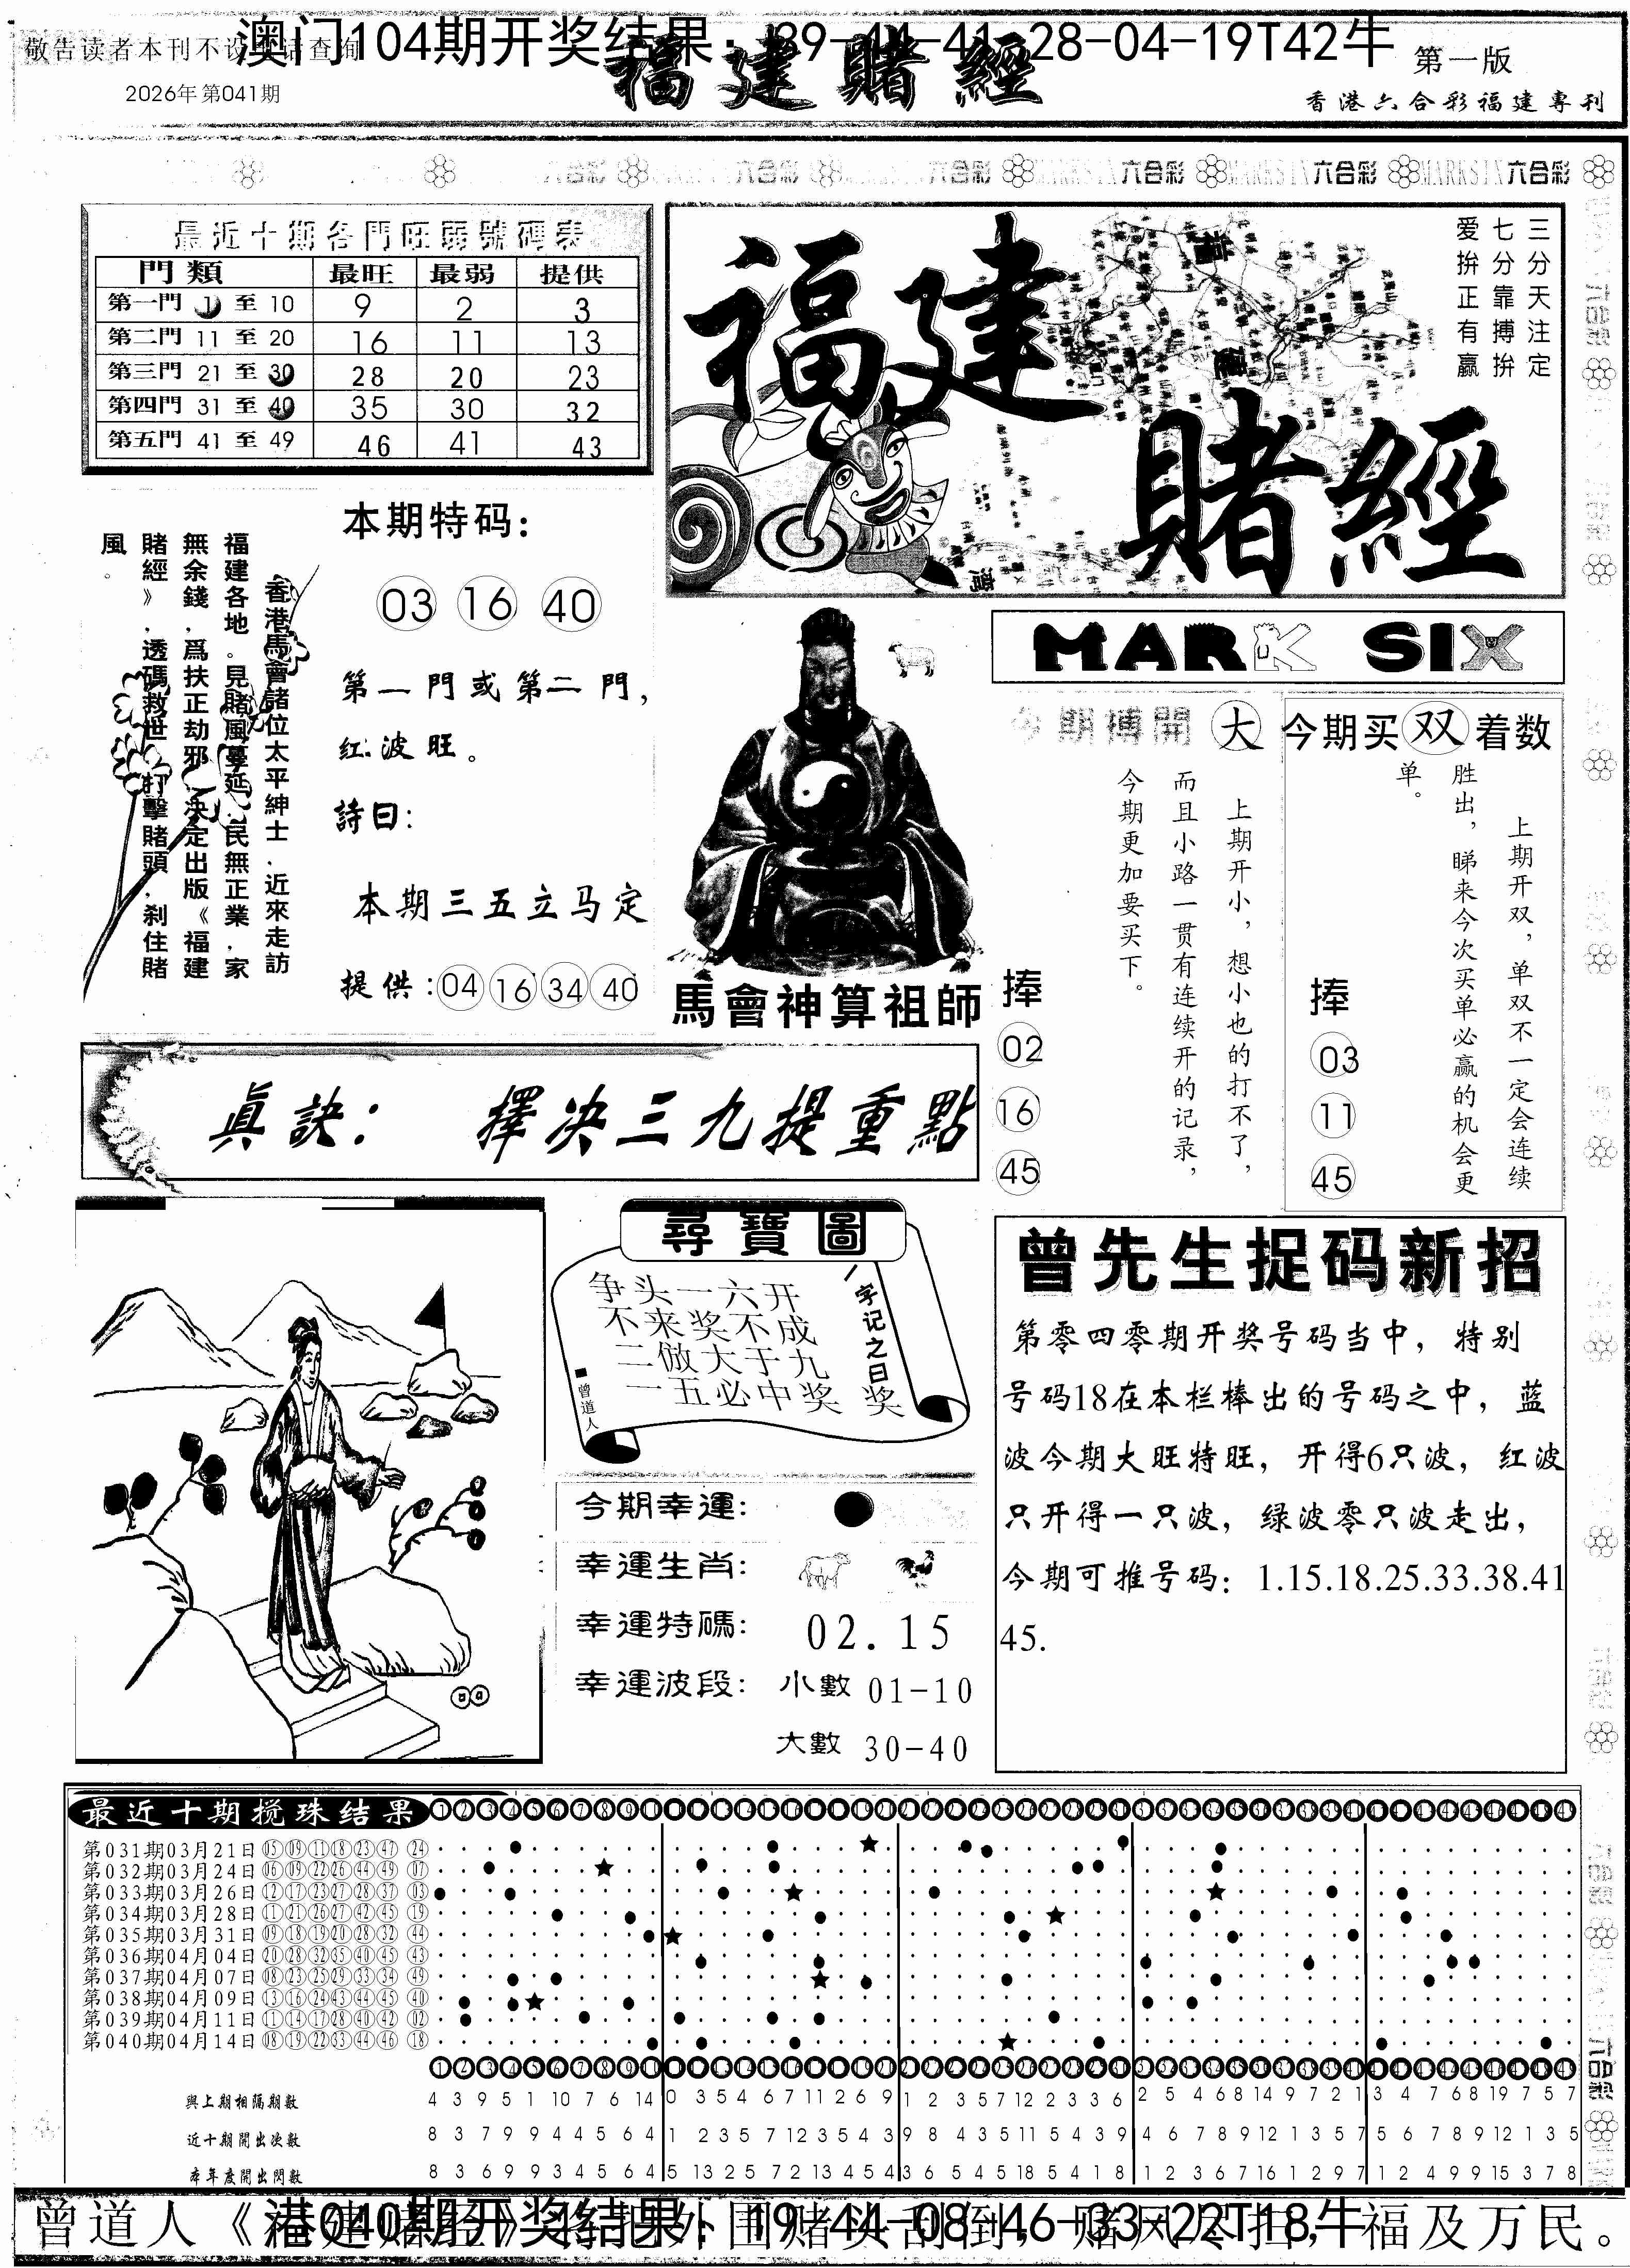 澳门104期开奖结果:39-44-41-28-04-19T42牛
敬告读者本刊不设电话查询
2026年第041期
福建賭經
第一版
香港六合彩福建專刊
六合彩 六合彩 六合彩 MARKSIX六合彩 MARKSIX六合彩 MARKSIX六合彩
最近十期各門旺弱號碼表
門類 最旺 最弱 提供
第一門 1 至 10 9 2 3
第二門 11 至 20 16 11 13
第三門 21 至 30 28 20 23
第四門 31 至 40 35 30 32
第五門 41 至 49 46 41 43
福建
賭經
三分天注定
七分靠搏拚
爱拚正有赢
香港馬會諸位太平紳士.近來走訪
福建各地。見賭風蔓延.民無正業.家
無余錢.爲扶正劫邪.决定出版《福建
賭經》.透碼救世.打擊賭頭.刹住賭
風。
本期特码:
03 16 40
第一門或第二門,
红波旺。
詩曰:
本期三五立马定
提供:04 16 34 40
馬會神算祖師
MARK SIX
今期搏開 大
上期开小,想小也的打不了,
而且小路一贯有连续开的记录,
今期更加要买下。
捧
02
16
45
今期买 双 着数
上期开双,单双不一定会连续
胜出,睇来今次买单必赢的机会更
单。
捧
03
11
45
真訣: 擇决三九提重點
尋寶圖
争头一六开
不来奖不成
二倣大于九
一五必中奖
一字记之曰 奖
■曾道人
今期幸運:
幸運生肖:
幸運特碼: 02.15
幸運波段: 小數 01-10
大數 30-40
曾先生捉码新招
第零四零期开奖号码当中,特别
号码18在本栏棒出的号码之中,蓝
波今期大旺特旺,开得6只波,红波
只开得一只波,绿波零只波走出,
今期可推号码:1.15.18.25.33.38.41
45.
最近十期搅珠结果
第031期03月21日 05 09 11 18 23 47 24
第032期03月24日 06 09 22 26 44 49 07
第033期03月26日 12 17 23 27 28 37 03
第034期03月28日 11 21 26 27 42 45 19
第035期03月31日 09 18 19 20 28 32 44
第036期04月04日 20 28 32 35 40 45 43
第037期04月07日 08 23 25 29 33 34 49
第038期04月09日 13 16 24 43 44 45 40
第039期04月11日 11 14 17 28 40 42 02
第040期04月14日 08 19 22 33 44 46 18
與上期相隔期數 4 3 9 5 1 10 7 6 14 0 3 5 4 6 7 11 2 6 9 1 2 3 5 7 12 2 3 3 6 2 5 4 6 8 14 9 7 2 1 3 4 7 6 8 19 7 5 7
近十期開出次數 8 3 7 9 9 4 4 5 6 4 1 2 3 5 7 12 3 5 4 3 9 8 4 3 5 11 5 4 3 9 4 6 7 8 9 12 1 3 5 7 5 6 7 8 9 12 1 3 5
本年度開出閃數 8 3 6 9 9 3 4 5 6 4 5 13 2 5 7 2 13 4 5 4 3 6 5 4 5 18 5 4 1 8 1 2 3 6 7 16 1 2 9 7 1 2 4 9 9 15 3 7 8
港040期开奖结果:19-44-08-46-33-22T18牛
曾道人《福建赌经》将把外围赌头刮倒,赌风尽扫,福及万民。